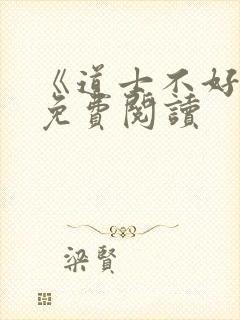 《道士不好
免費閱讀
梁賢